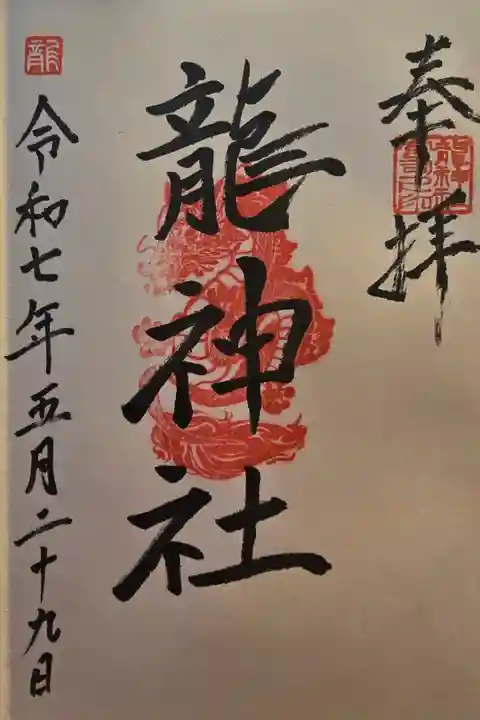 奉拝
龍神社
龍
令和七年五月二十九日